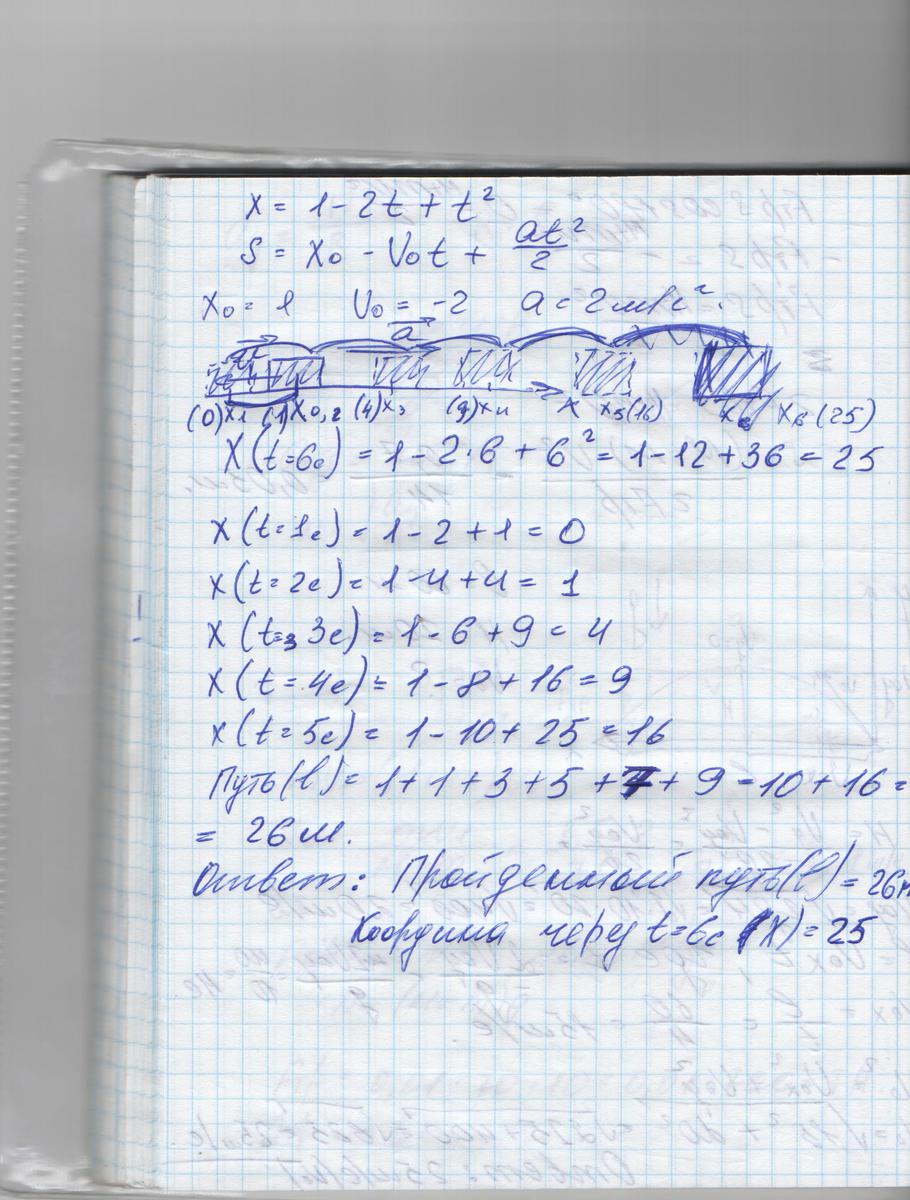 x = 1 - 2t + t²
S = x₀ - V₀t + at²/2
x₀ = 1 V₀ = -2 a = 2 м/с².
a
(0) x₁ (1) x₀,₂ (4) x₃ (9) x₄ x x₅ (16) x₆ x₆ (25)
x(t=6с) = 1 - 2·6 + 6² = 1 - 12 + 36 = 25
x(t=1с) = 1 - 2 + 1 = 0
x(t=2с) = 1 - 4 + 4 = 1
x(t=3 3с) = 1 - 6 + 9 = 4
x(t=4с) = 1 - 8 + 16 = 9
x(t=5с) = 1 - 10 + 25 = 16
Путь(l) = 1 + 1 + 3 + 5 + 7 + 9 = 10 + 16 =
= 26 м.
Ответ: Пройденный путь(l) = 26м
Координа через t=6с (x) = 25